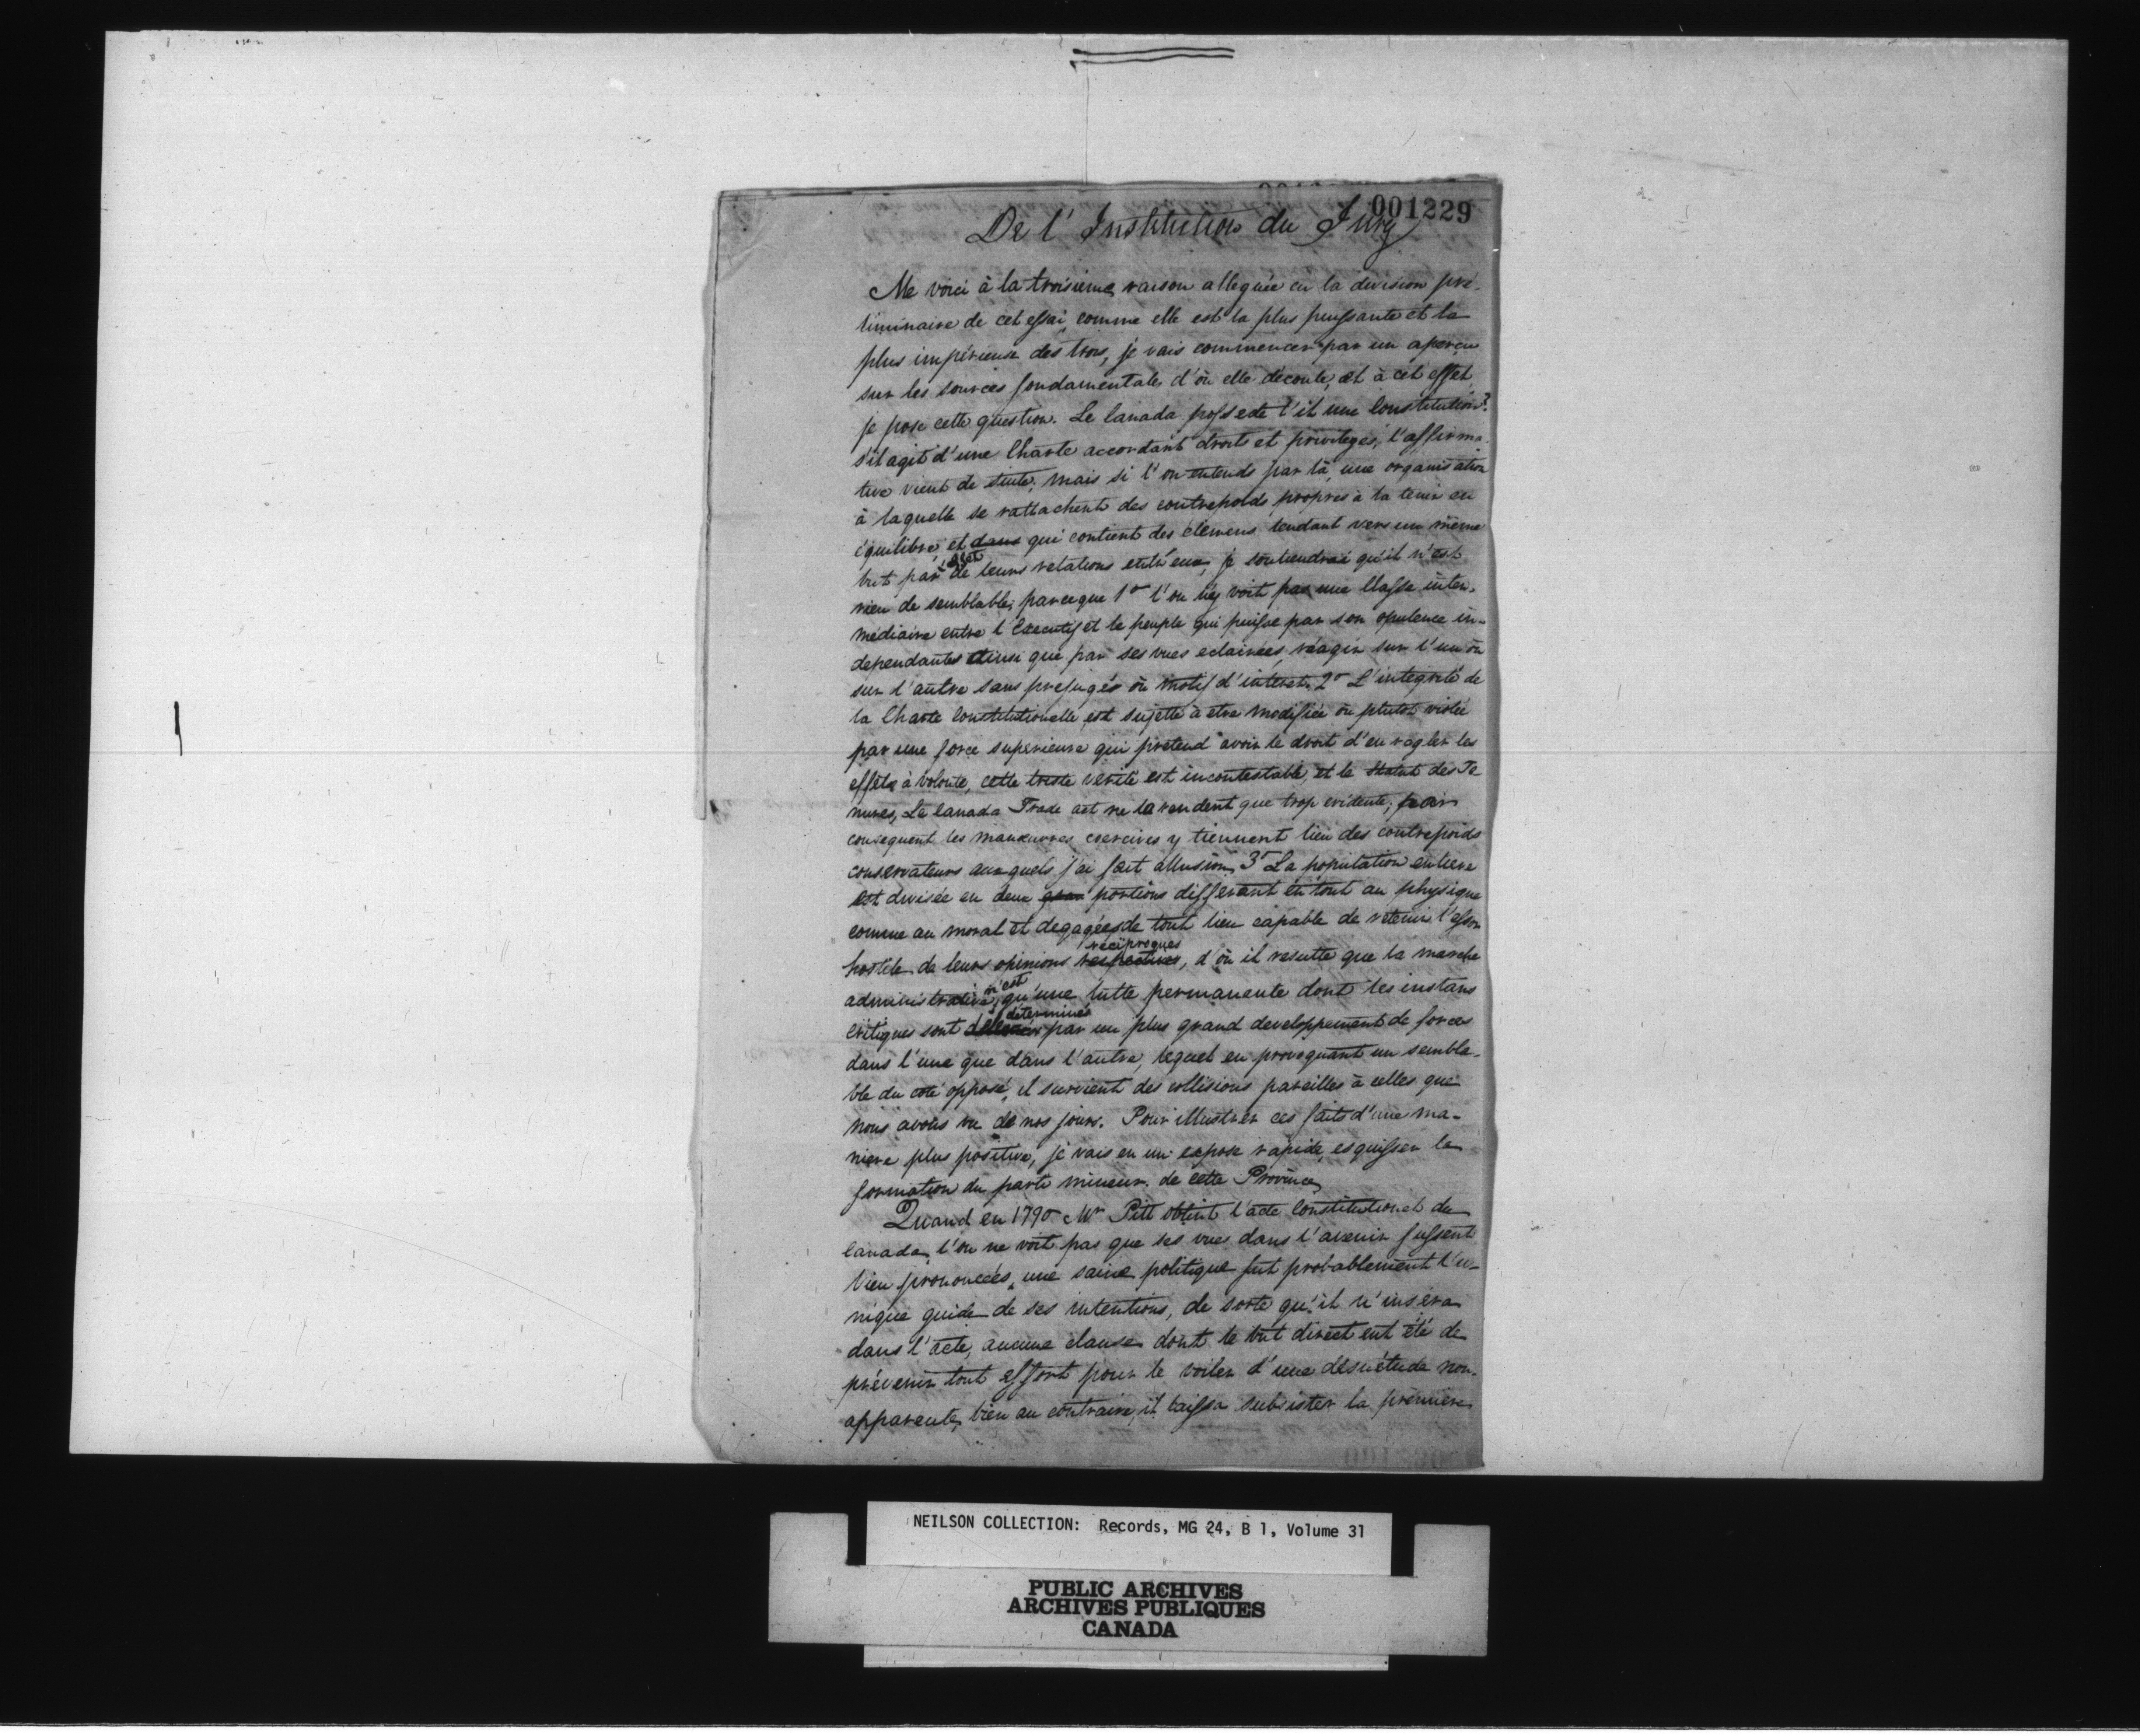 001229
De l'Institution du Jury
Me voici à la troisieme raison alleguée en la division pré-
liminaire de cet essai, comme elle est la plus puissante et la
plus impérieuse des trois, je vais commencer par un aperçu
sur les sources fondamentales d'où elle découle, et à cet effet
je pose cette question. Le Canada possede t'il une Constitution?
s'il agit d'une Charte accordant droits et privileges, l'affirma-
tive vient de suite; mais si l'on entends par là, une organisation
à laquelle se rattachent des contrepoids propres à la tenir en
équilibre, et dans qui contient des élémens tendant vers un même
but par l'effet de leurs relations entr'eux, je soutiendrai qu'il n'est
rien de semblable; parceque 1o l'on n'y voit pas une Classe inter-
médiaire entre l'Executif et le peuple qui puisse par son opulence in-
dependante ainsi que par ses vues eclairées, réagir sur l'un ou
sur l'autre sans prejugés ou motif d'intéret. 2o L'intégrité de
la Charte Constitutionelle est sujette à etre modifiée ou plutot violée
par une force superieure qui prétend avoir le droit d'en regler les
effets à volonté, cette triste vérité est incontestable, et le Statut des Te
nures, Le Canada Trade act ne la rendent que trop evidente; par
consequent les manœuvres coercives y tiennent lieu des contrepoids
conservateurs auxquels j'ai fait allusion. 3o La population entiere
est divisée en deux portions differant en tout au physique
comme au moral et degagées de tout lien capable de retenir l'essor
hostile de leurs opinions respectives réciproques, d'où il resulte que la marche
administrative n'est qu'une lutte permanente dont les instans
critiques sont déterminés par un plus grand developpement de forces
dans l'une que dans l'autre, lequel en provoquant un sembla-
ble du coté opposé, il survient des collisions pareilles à celles que
nous avons vu de nos jours. Pour illustrer ces faits d'une ma-
niere plus positive, je vais en un exposé rapide, esquisser la
formation du parti mineur de cette Province
Quand en 1790 Mr Pitt obtint l'acte Constitutionel du
Canada, l'on ne voit pas que ses vues dans l'avenir fussent
bien prononcées, une saine politique fut probablement l'u-
nique guide de ses intentions, de sorte qu'il n'insera
dans l'acte, aucune clause dont le but direct eut été de
prévenir tout effort pour le voiler d'une désuétude non-
apparente, bien au contraire, il laissa subsister la premiere
NEILSON COLLECTION: Records, MG 24, B 1, Volume 31
PUBLIC ARCHIVES
ARCHIVES PUBLIQUES
CANADA